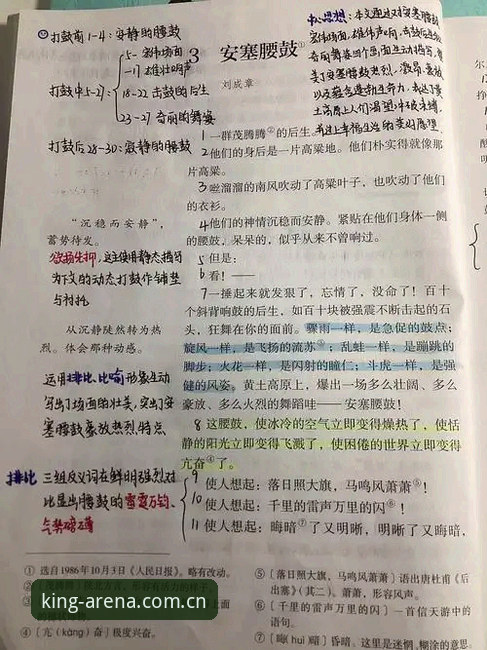 打鼓前1-4：安静的腰鼓
打鼓中5-27：
5- 宏伟场面
-11 雄壮响声
18-22 击鼓的后生
23-27 奇丽的舞姿
打鼓后28-30：寂静的腰鼓
中心思想：本文通过对安塞腰鼓
3 安塞腰鼓①
刘成章
1 一群茂腾腾②的后生。
2 他们的身后是一片高粱地。他们朴实得就像那
片高粱。
3 咝溜溜的南风吹动了高粱叶子，也吹动了他们
的衣衫。
4 他们的神情沉稳而安静。紧贴在他们身体一侧
的腰鼓，呆呆的，似乎从来不曾响过。
5 但是：
6 看！——
7 一捶起来就发狠了，忘情了，没命了！百十
个斜背响鼓的后生，如百十块被强震不断击起的石
头，狂舞在你的面前。骤雨一样，是急促的鼓点；
旋风一样，是飞扬的流苏③；乱蛙一样，是蹦跳的
脚步；火花一样，是闪射的瞳仁；斗虎一样，是强
健的风姿。黄土高原上，爆出一场多么壮阔、多么
豪放、多么火烈的舞蹈哇——安塞腰鼓！
8 这腰鼓，使冰冷的空气立即变得燥热了，使恬
静的阳光立即变得飞溅了，使困倦的世界立即变得
亢奋④了。
9 使人想起：落日照大旗，马鸣风萧萧⑤！
10 使人想起：千里的雷声万里的闪⑥！
11 使人想起：晦暗⑦了又明晰，明晰了又晦暗，
“沉稳而安静”，
蓄势待发。
欲扬先抑，这主使用静态描写
为下文的动态打鼓作铺垫
与衬托
从沉静陡然转为热
烈。体会那种动感。
运用排比、比喻，形象生动
写出了场面的壮美，突出了安
塞腰鼓豪放热烈特点
排比 三组反义词在鲜明强烈对
比显出腰鼓的雷霆万钧、
气势磅礴
① 选自1986年10月3日《人民日报》。略有改动。
④〔亢（kàng）奋〕极度兴奋。
⑤〔落日照大旗，马鸣风萧萧〕语出唐杜甫《后
出塞》（其二）。萧萧，形容风声。
⑥〔千里的雷声万里的闪〕一首信天游中的
语句。
⑦〔晦（huì）暗〕昏暗。这里是迷惘、糊涂的意思。
king-arena.com.cn